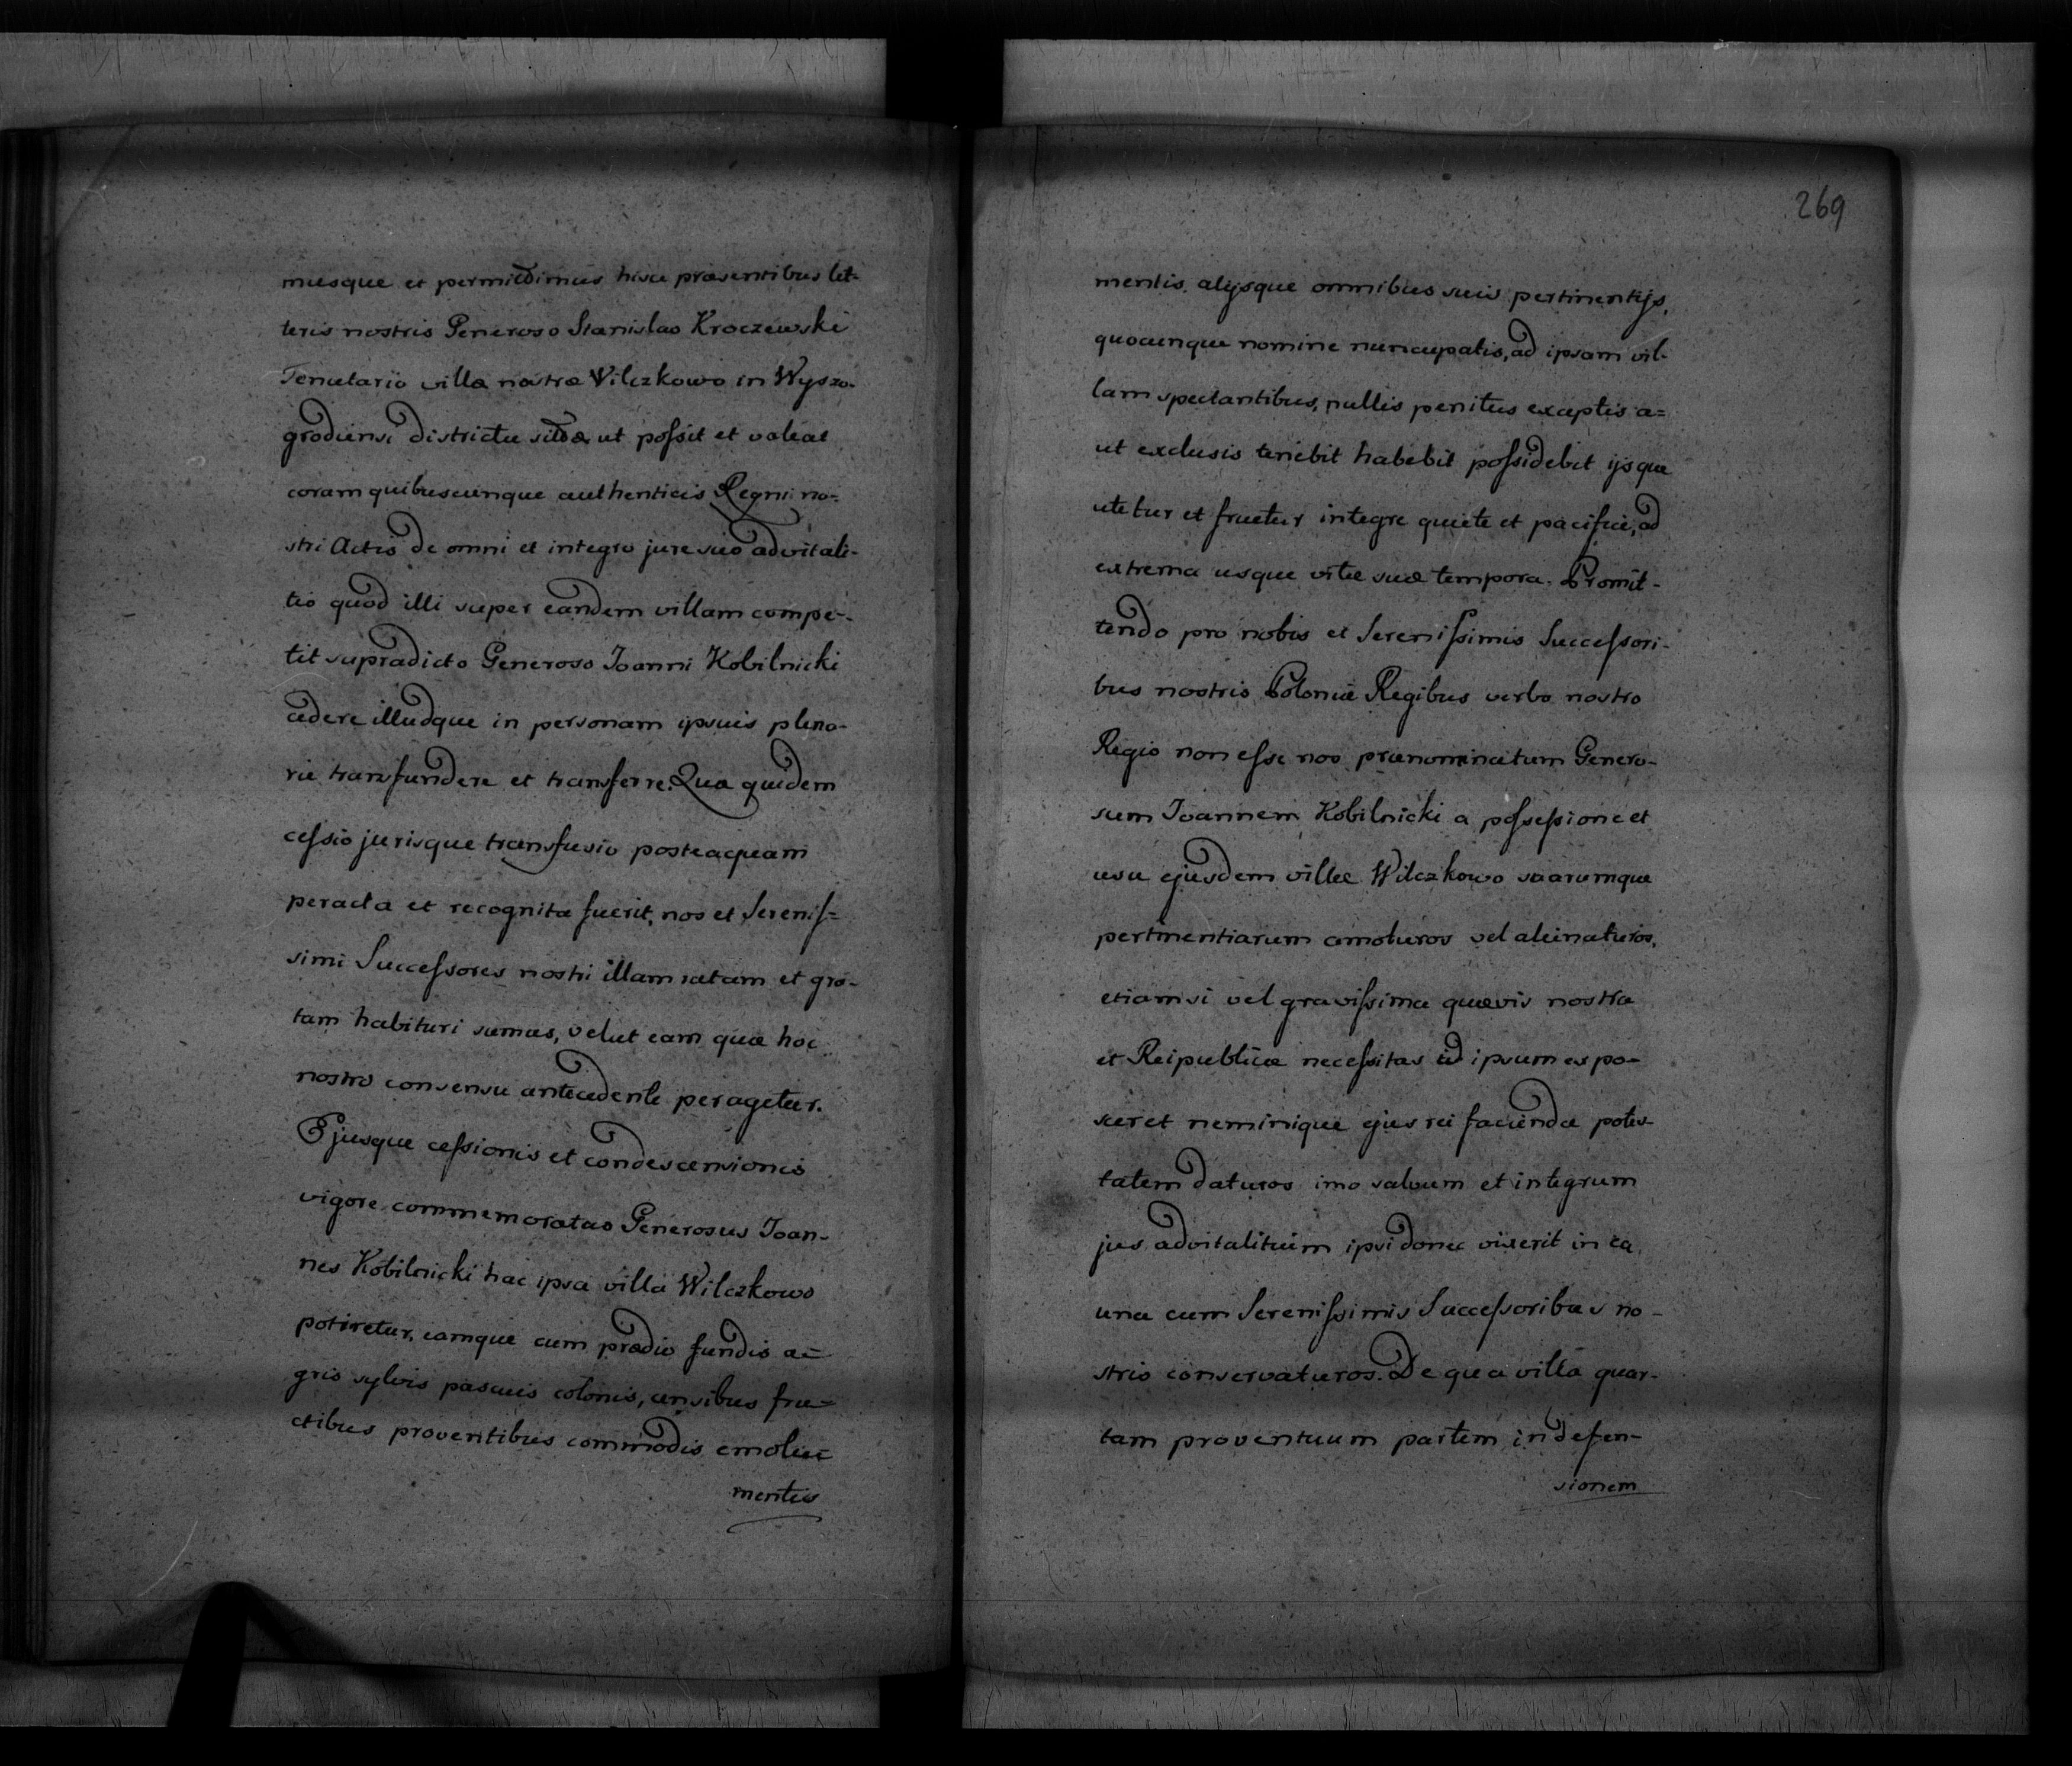 musque et permittimus hisce præsentibus lit-
teris nostris Generoso Stanislao Kroczewski
Tenutario villæ nostræ Wilczkowo in Wyszo-
grodiensi districtu sitæ ut possit et valeat
coram quibuscunque authenticis Regni no-
stri Actis de omni et integro jure suo advitali-
tio quod illi super eandem villam compe-
tit supradicto Generoso Joanni Kobilnicki
cedere illudque in personam ipsius plena-
rie transfundere et transferre. Quæ quidem
cessio jurisque transfusio posteaquam
peracta et recognita fuerit, nos et Serenis=
simi Successores nostri illam ratam et gra-
tam habituri sumus, velut eam quæ hoc
nostro consensu antecedente peragetur.
Ejusque cessionis et condescensionis
vigore commemoratus Generosus Joan-
nes Kobilnicki hac ipsa villa Wilczkowo
potiretur, eamque cum prædio fundis a=
gris sylvis pascuis colonis, censibus fru=
ctibus proventibus commodis emolu=
mentis
269
mentis, alijsque omnibus suis pertinentijs,
quocunque nomine nuncupatis, ad ipsam vil-
lam spectantibus, nullis penitus exceptis a=
ut exclusis tenebit habebit possidebit ijsque
utetur et fruetur integre quiete et pacifice, ad
extrema usque vitæ suæ tempora. Promit-
tendo pro nobis et Serenissimis Successori-
bus nostris Poloniæ Regibus verbo nostro
Regio non esse nos prænominatum Genero-
sum Joannem Kobilnicki a possessione et
usu ejusdem villæ Wilczkowo suarumque
pertinentiarum amoturos vel alienaturos,
etiamsi vel gravissima quævis nostra
et Reipublicæ necessitas id ipsum expo-
sceret neminique ejus rei faciendæ potes-
tatem daturos imo salvum et integrum
jus advitalitium ipsi donec vixerit in ea
una cum Serenissimis Successoribus no-
stris conservaturos. De qua villa quar-
tam proventuum partem in defen-
sionem